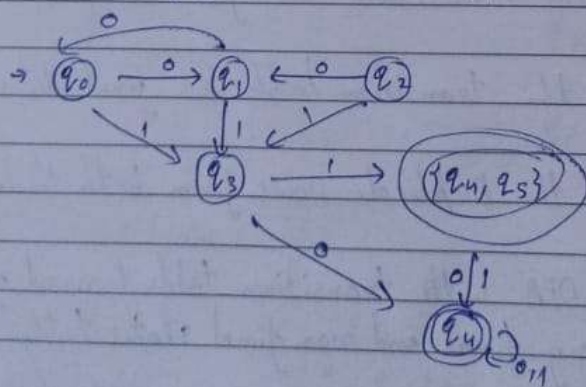 0
→ q0 0 q1 0 q2
1 1 1
q3 1 {q4, q5}
0 0 1
q4 0,1